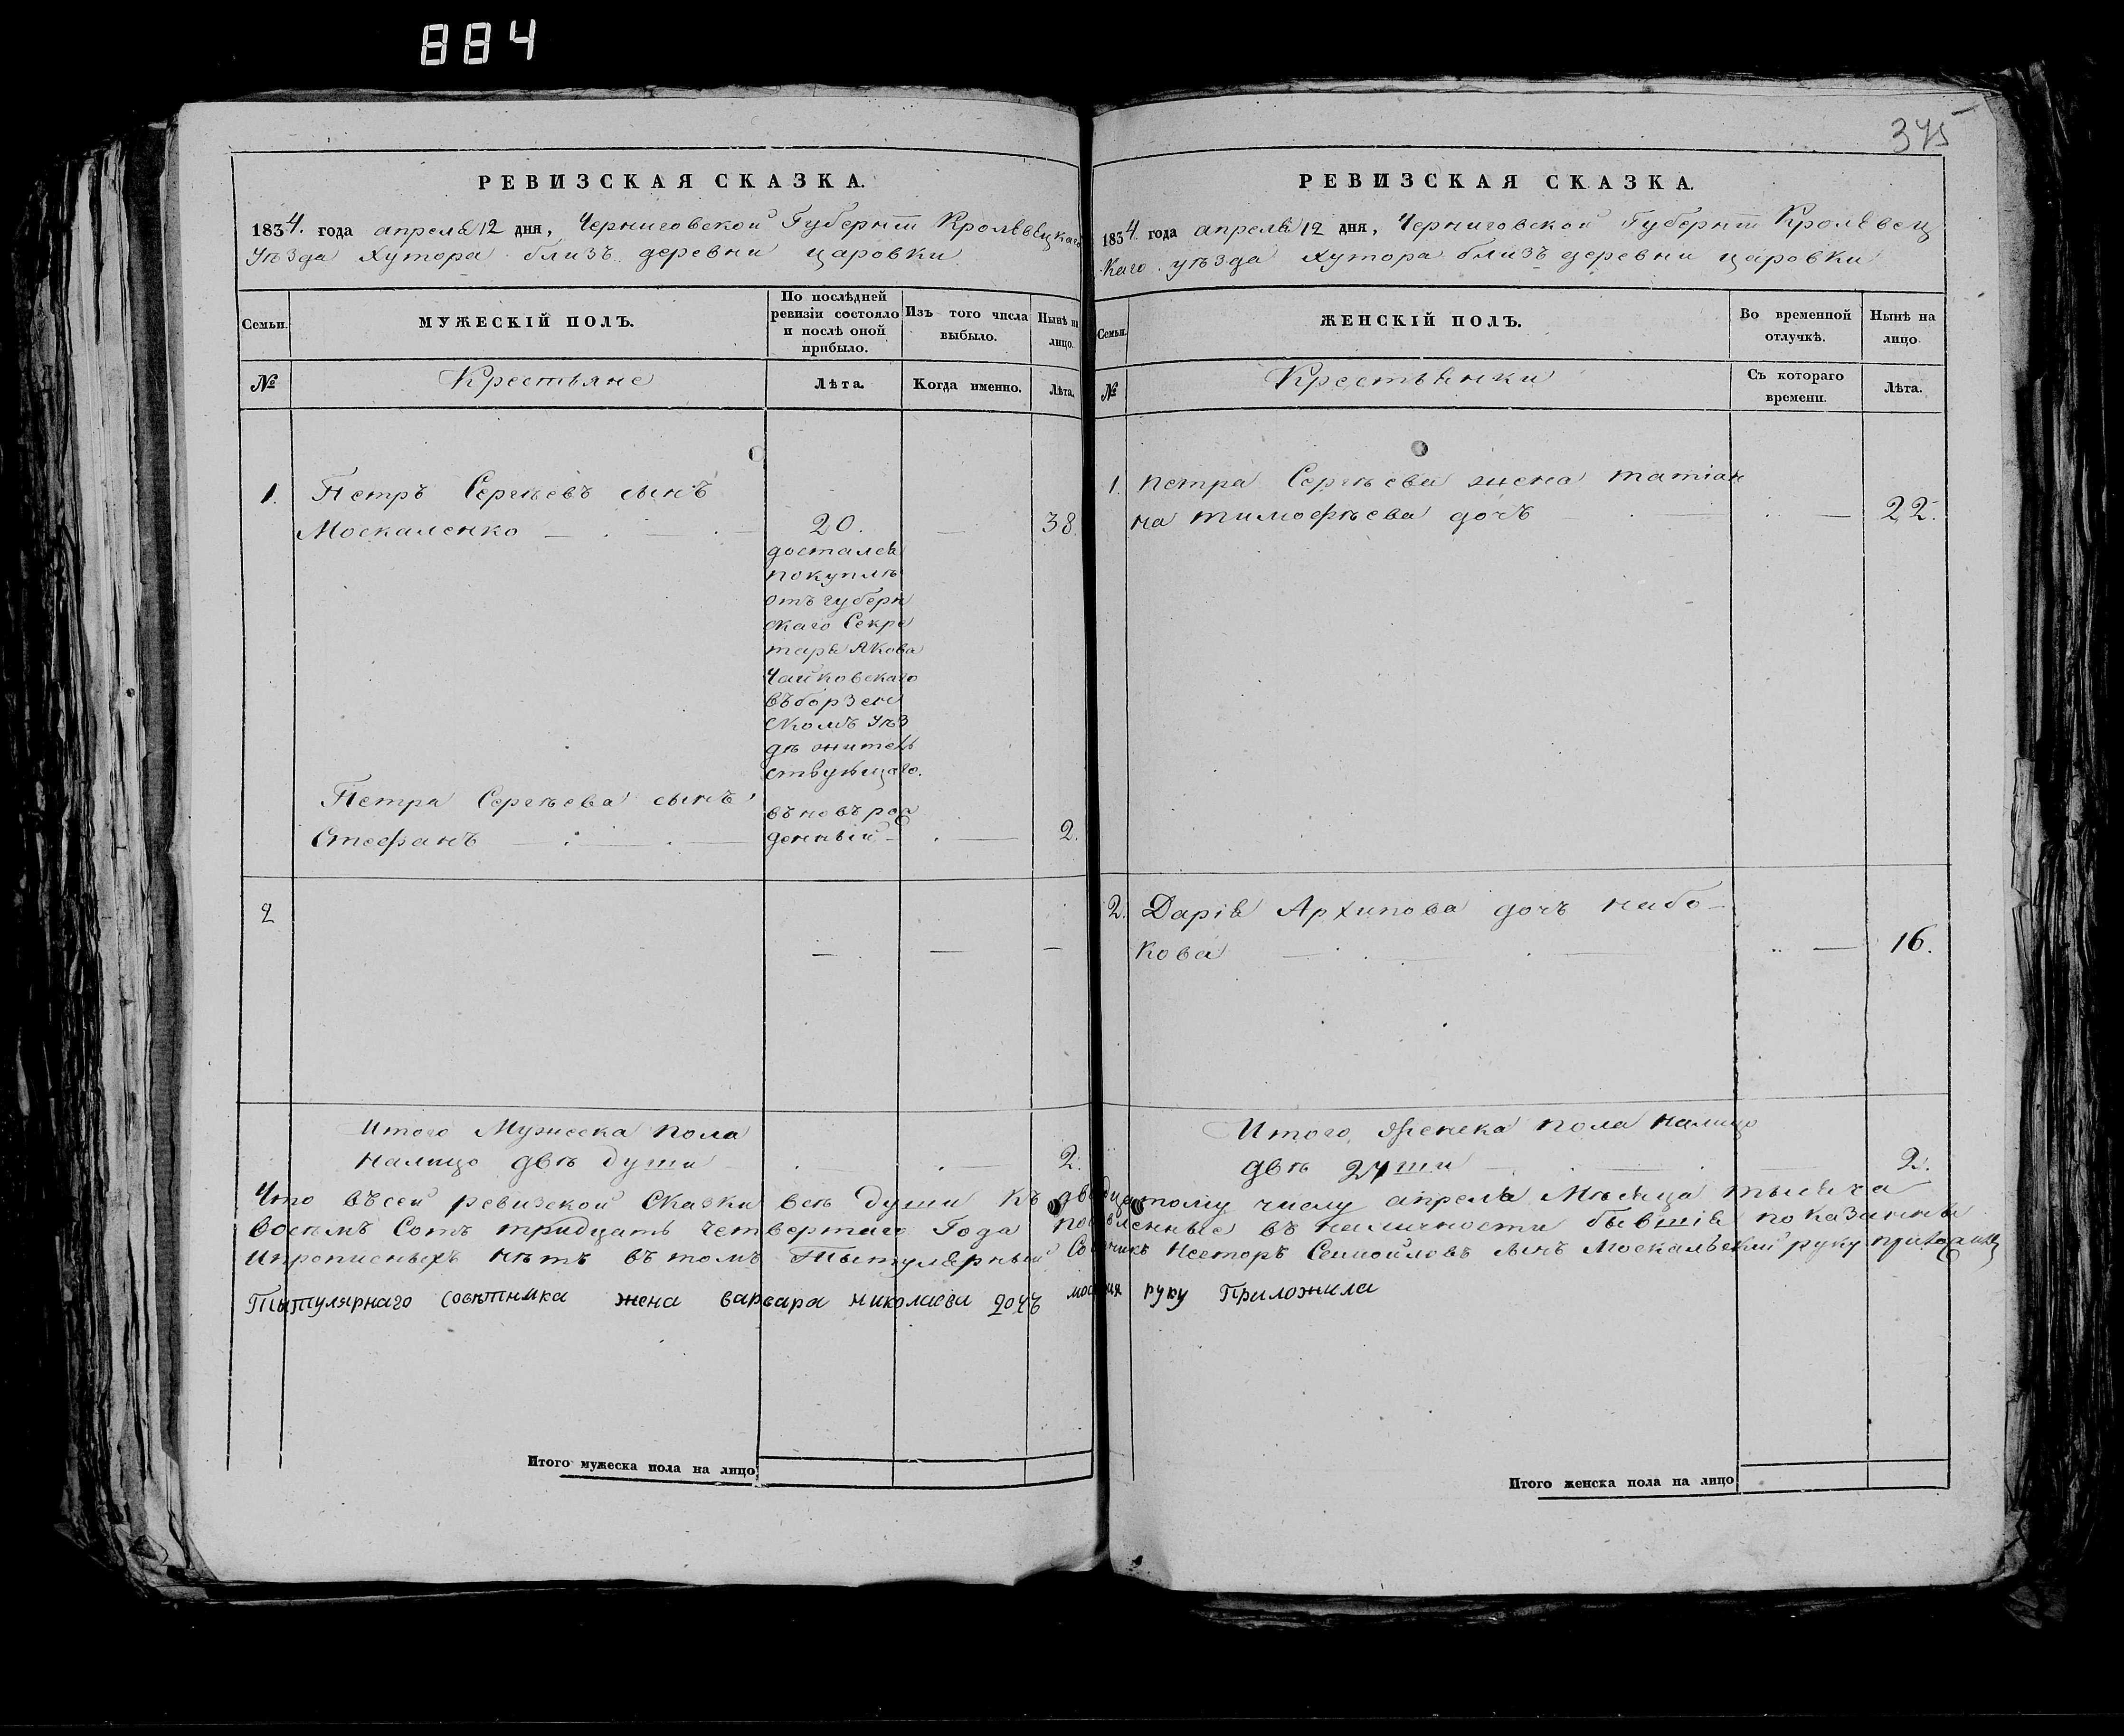 884
375
РЕВИЗСКАЯ СКАЗКА.
1834. года апреля 12 дня, Черниговской Губерніи Кролѣвецкаго
Уѣзда Хутора близъ деревни царовки
Семьи.
МУЖЕСКІЙ ПОЛЪ.
По послѣдней
ревизіи состояло
и послѣ оной
прибыло.
Изъ того числа
выбыло.
Нынѣ на
лицо.
№
Крестьяне
Лѣта.
Когда именно.
Лѣта.
1. Петръ Сергѣевъ сынъ
Москаленко 20. 38.
достался
покупкѣ
отъ губерн
скаго Секре
таря Якова
Чайковскаго
въборзен
скомъ уѣз
дѣ житель
ствующаго.
Петра Сергѣева сынъ
Стефанъ 2.
въновърож
денный
2
Итого Мужеска пола
налицо двѣ души 2.
РЕВИЗСКАЯ СКАЗКА.
1834. года апреля 12 дня, Черниговской Губерніи Кролѣвец
каго уѣзда хутора близъ деревни царовки
Семьи.
ЖЕНСКІЙ ПОЛЪ.
Во временной
отлучкѣ.
Нынѣ на
лицо.
№
Крестьянки
Съ котораго
времени.
Лѣта.
1. Петра Сергѣева жена татіан
на тимофѣева дочъ 22.
2. Дарія Архипова дочъ набо
кова 16.
Итого женска пола налицо
двѣ души 2.
Что въсей ревизской Сказки всѣ души къ двадцатому числу апреля Мѣсяца тысяча
восемъ Сотъ тридцать четвертаго Года въ наличности бывшія показанны
ипрописныхъ нѣтъ въ томъ Тытулярный Совѣтникъ Несторъ Самойловъ сынъ Москальскій руку
Тытулярнаго совѣтника жена варвара николаева дочъ руку Приложила
Итого мужеска пола на лицо
Итого женска пола на лицо